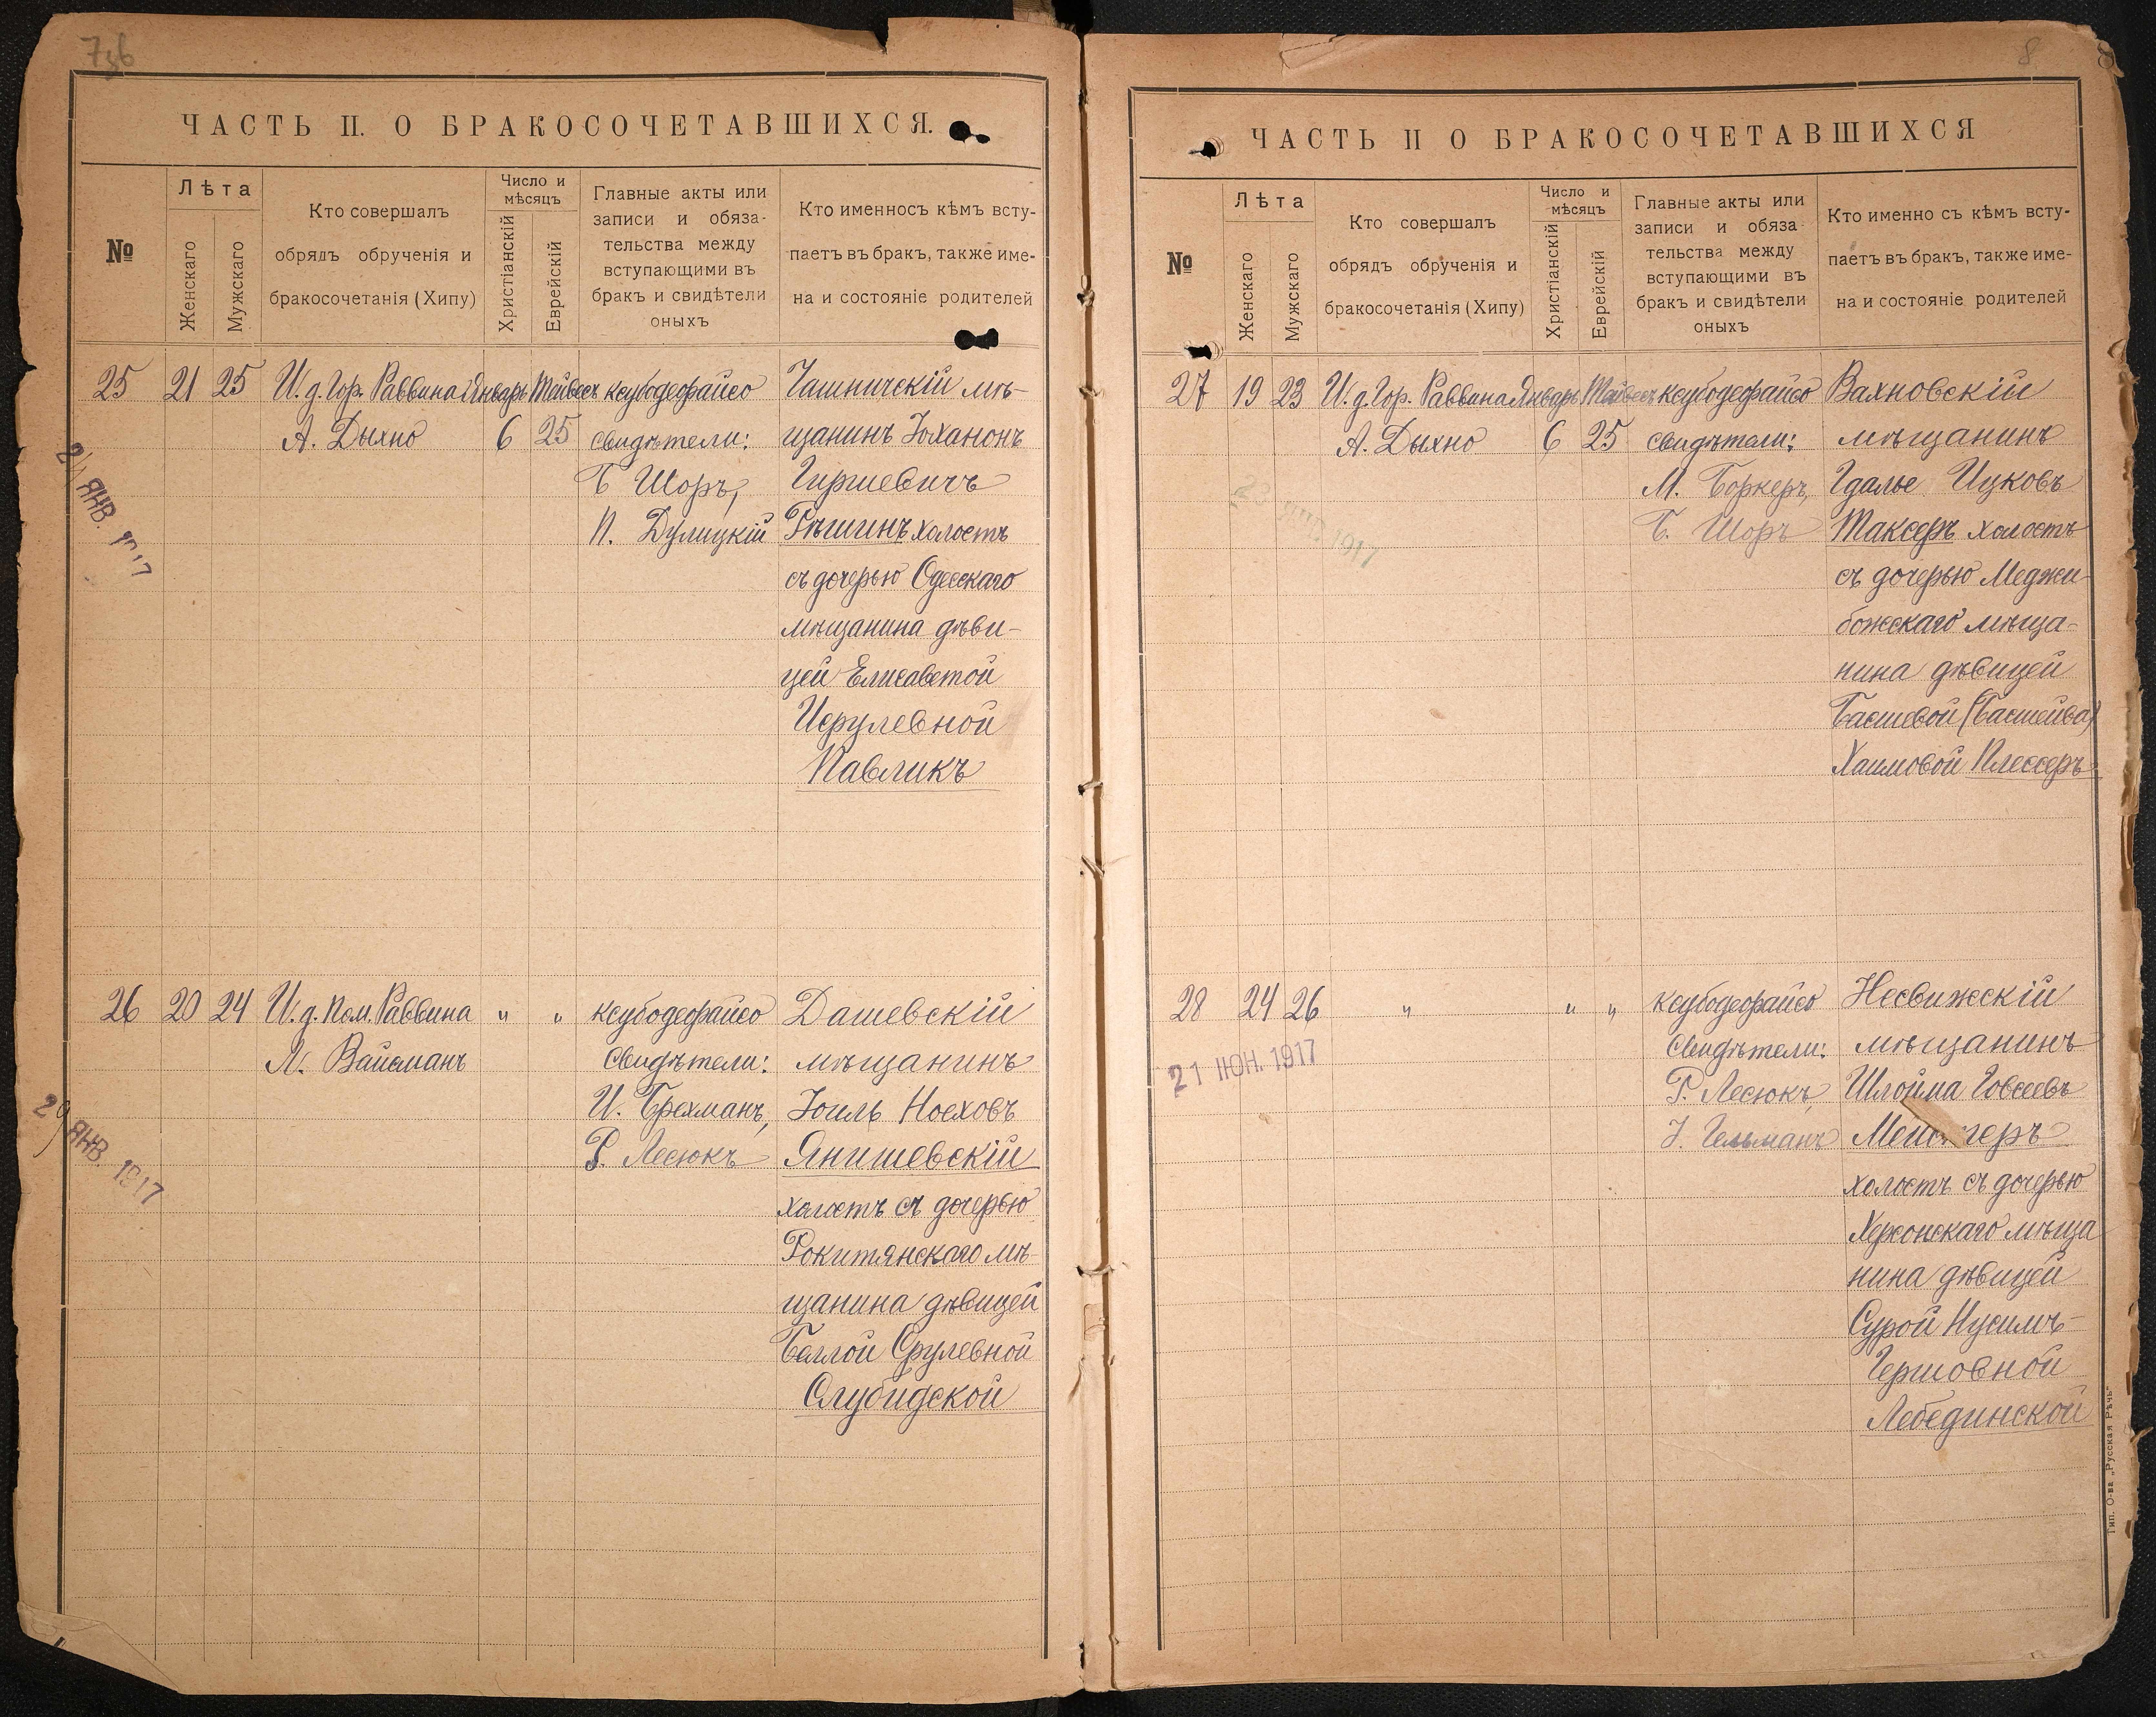 7об
ЧАСТЬ II. О БРАКОСОЧЕТАВШИХСЯ.
№
Лѣта
Женскаго
Мужскаго
Кто совершалъ
обрядъ обрученія и
бракосочетанія (Хипу)
Число и
мѣсяцъ
Христіанскій
Еврейскій
Главные акты или
записи и обяза-
тельства между
вступающими въ
бракъ и свидѣтели
оныхъ
Кто именносъ кѣмъ всту-
паетъ въ бракъ, также име-
на и состояніе родителей
25 21 25 И. д. Гор. Раввина Январь Тейвесъ ксубодефайсо Чашничскій мѣ-
А. Дыхно 6 25 свидѣтели: щанинъ Іоханонъ
Б Шоръ, Гиршевичъ
П. Дулицкій Гѣшинъ холостъ
съ дочерью Одесскаго
мѣщанина дѣви-
цей Елисаветой
Исрулевной
Павликъ
24 ЯНВ. 1917
26 20 24 И. д. Пом. Раввина " " ксубодефайсо Дашевскій
Л. Вайсманъ свидѣтели: мѣщанинъ
И. Брехманъ, Іоиль Ноеховъ
Р. Лесюкъ Янишевскій
холостъ съ дочерью
Рокитянскаго мѣ-
щанина дѣвицей
Беллой Срулевной
Слубидской
29 ЯНВ. 1917
8
ЧАСТЬ II О БРАКОСОЧЕТАВШИХСЯ
№
Лѣта
Женскаго
Мужскаго
Кто совершалъ
обрядъ обрученія и
бракосочетанія (Хипу)
Число и
мѣсяцъ
Христіанскій
Еврейскій
Главные акты или
записи и обяза-
тельства между
вступающими въ
бракъ и свидѣтели
оныхъ
Кто именно съ кѣмъ всту-
паетъ въ бракъ, также име-
на и состояніе родителей
27 19 23 И. д. Гор. Раввина Январь Тейвесъ ксубодефайсо Вахновскій
А. Дыхно 6 25 свидѣтели: мѣщанинъ
М. Боркеръ, Гдалье Ицковъ
Б. Шоръ Таксеръ холостъ
съ дочерью Меджи-
божскаго мѣща-
нина дѣвицей
Басшевой (Басшейва)
Хаимовой Плессеръ
1917
28 24 26 " " " ксубодефайсо Несвижскій
свидѣтели: мѣщанинъ
Р. Лесюкъ, Шлойма Говсеевъ
І. Гельманъ
холостъ съ дочерью
Херсонскаго мѣща
нина дѣвицей
Сурой Нусимъ-
Гершовной
Лебединской
21 ІЮН. 1917
Тип. О-ва „Русская Рѣчь“